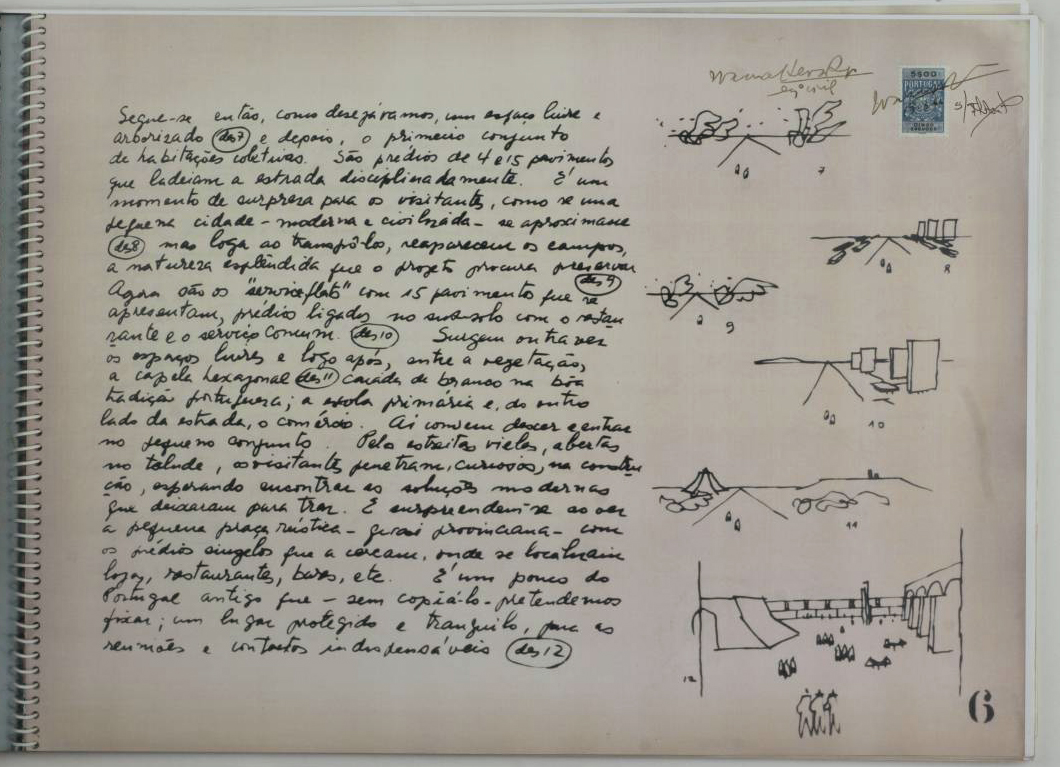 Segue-se então, como desejávamos, um espaço livre e
arborizado (des 7) e depois, o primeiro conjunto
de habitações coletivas. São prédios de 4 e 15 pavimentos
que ladeiam a estrada disciplinadamente. É um
momento de surpreza para os visitantes, como se uma
pequena cidade - moderna e civilizada - se aproximasse
(des 8) mas logo ao transpô-los, reaparecem os campos,
a natureza esplêndida que o projeto procura preservar
(des 9)
Agora são os "service flats" com 15 pavimentos que se
apresentam, prédios ligados no subsolo com o restau
rante e o serviço comum. (des 10) Surgem outra vez
os espaços livres e logo após, entre a vegetação,
a capela hexagonal (des 11) caiada de branco na bôa
tradição portuguesa; a escola primária e, do outro
lado da estrada, o comércio. Aí convem descer e entrar
no pequeno conjunto. Pelas estreitas vielas, abertas
no talude, os visitantes penetram, curiosos, na constru
ção, esperando encontrar as soluções modernas
que deixaram para traz. E surpreendem-se ao ver
a pequena praça rústica - quasi provinciana - com
os prédios singelos que a cercam, onde se localizam
lojas, restaurantes, bares, etc. É um pouco do
Portugal antigo que - sem copiá-lo - pretendemos
fixar; um lugar protegido e tranquilo, para as
reuniões e contactos indispensáveis (des 12)
engº civil
5$00
PORTUGAL
7
8
9
10
11
12
6